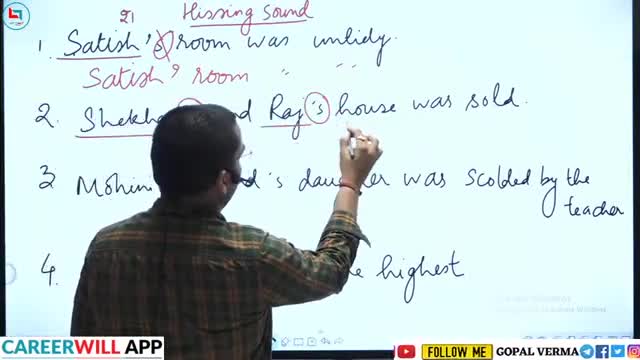 21 Hissing Sound
1. Satish's room was untidy.
Satish' room " "
2. Shekha nd Raj's house was sold.
3 Mohin d's daug er was scolded by the
teacher
4. e highest
CAREERWILL APP
FOLLOW ME
GOPAL VERMA